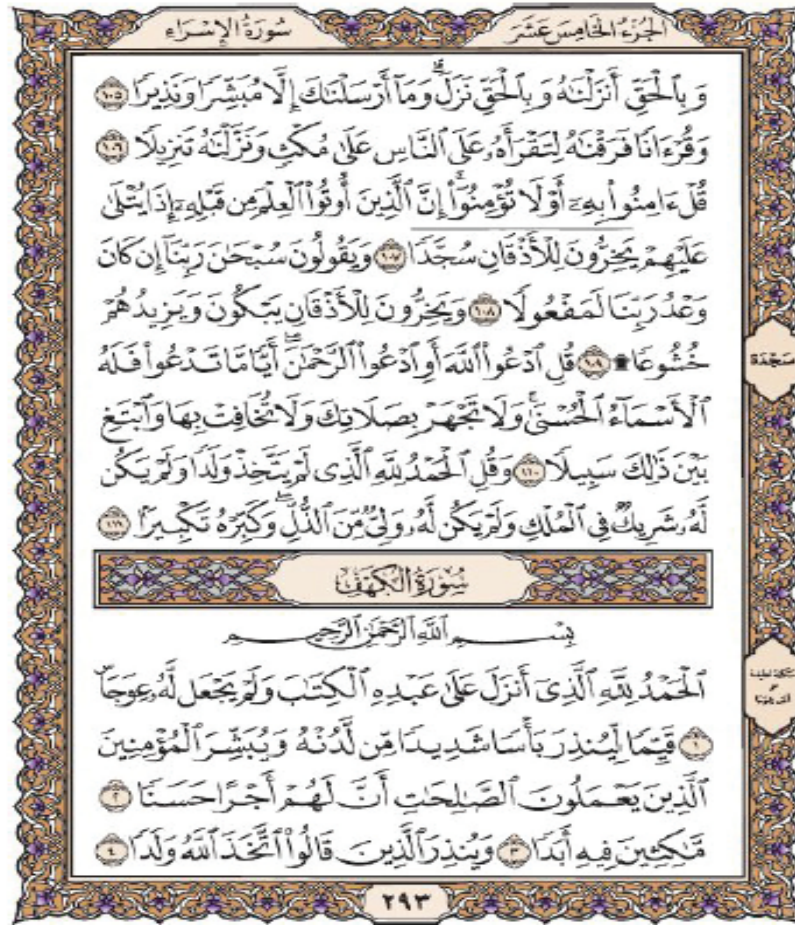 سُورَةُ الإِسْرَاءِ
الجُزْءُ الخَامِسَ عَشَرَ
وَبِٱلْحَقِّ أَنزَلْنَٰهُ وَبِٱلْحَقِّ نَزَلَ ۗ وَمَآ أَرْسَلْنَٰكَ إِلَّا مُبَشِّرًا وَنَذِيرًا ١٠٥
وَقُرْءَانًا فَرَقْنَٰهُ لِتَقْرَأَهُۥ عَلَى ٱلنَّاسِ عَلَىٰ مُكْثٍ وَنَزَّلْنَٰهُ تَنزِيلًا ١٠٦
قُلْ ءَامِنُوا۟ بِهِۦٓ أَوْ لَا تُؤْمِنُوٓا۟ ۚ إِنَّ ٱلَّذِينَ أُوتُوا۟ ٱلْعِلْمَ مِن قَبْلِهِۦٓ إِذَا يُتْلَىٰ
عَلَيْهِمْ يَخِرُّونَ لِلْأَذْقَانِ سُجَّدًا ١٠٧ وَيَقُولُونَ سُبْحَٰنَ رَبِّنَآ إِن كَانَ
وَعْدُ رَبِّنَا لَمَفْعُولًا ١٠٨ وَيَخِرُّونَ لِلْأَذْقَانِ يَبْكُونَ وَيَزِيدُهُمْ
خُشُوعًا ۩ ١٠٩ قُلِ ٱدْعُوا۟ ٱللَّهَ أَوِ ٱدْعُوا۟ ٱلرَّحْمَٰنَ ۖ أَيًّا مَّا تَدْعُوا۟ فَلَهُ
ٱلْأَسْمَآءُ ٱلْحُسْنَىٰ ۚ وَلَا تَجْهَرْ بِصَلَاتِكَ وَلَا تُخَافِتْ بِهَا وَٱبْتَغِ
بَيْنَ ذَٰلِكَ سَبِيلًا ١١٠ وَقُلِ ٱلْحَمْدُ لِلَّهِ ٱلَّذِى لَمْ يَتَّخِذْ وَلَدًا وَلَمْ يَكُن
لَّهُۥ شَرِيكٌ فِى ٱلْمُلْكِ وَلَمْ يَكُن لَّهُۥ وَلِىٌّ مِّنَ ٱلذُّلِّ ۖ وَكَبِّرْهُ تَكْبِيرًۢا ١١١
سُورَةُ الكَهْفِ
بِسْمِ ٱللَّهِ ٱلرَّحْمَٰنِ ٱلرَّحِيمِ
ٱلْحَمْدُ لِلَّهِ ٱلَّذِىٓ أَنزَلَ عَلَىٰ عَبْدِهِ ٱلْكِتَٰبَ وَلَمْ يَجْعَل لَّهُۥ عِوَجَا ۜ
١ قَيِّمًا لِّيُنذِرَ بَأْسًا شَدِيدًا مِّن لَّدُنْهُ وَيُبَشِّرَ ٱلْمُؤْمِنِينَ
ٱلَّذِينَ يَعْمَلُونَ ٱلصَّٰلِحَٰتِ أَنَّ لَهُمْ أَجْرًا حَسَنًا ٢
مَّٰكِثِينَ فِيهِ أَبَدًا ٣ وَيُنذِرَ ٱلَّذِينَ قَالُوا۟ ٱتَّخَذَ ٱللَّهُ وَلَدًا ٤
سَجْدَة
٢٩٣